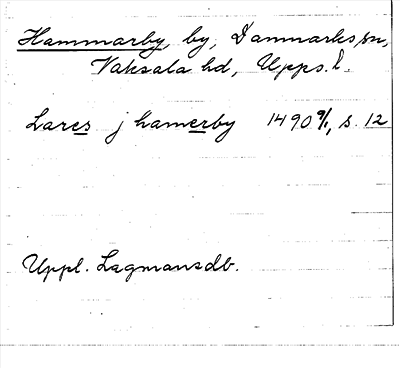 Hammarby, by, Danmarks sn,
Vaksala hd, Upps. l.
Lares j hamerby 1490 9/1, s. 12
Uppl. Lagmansdb.